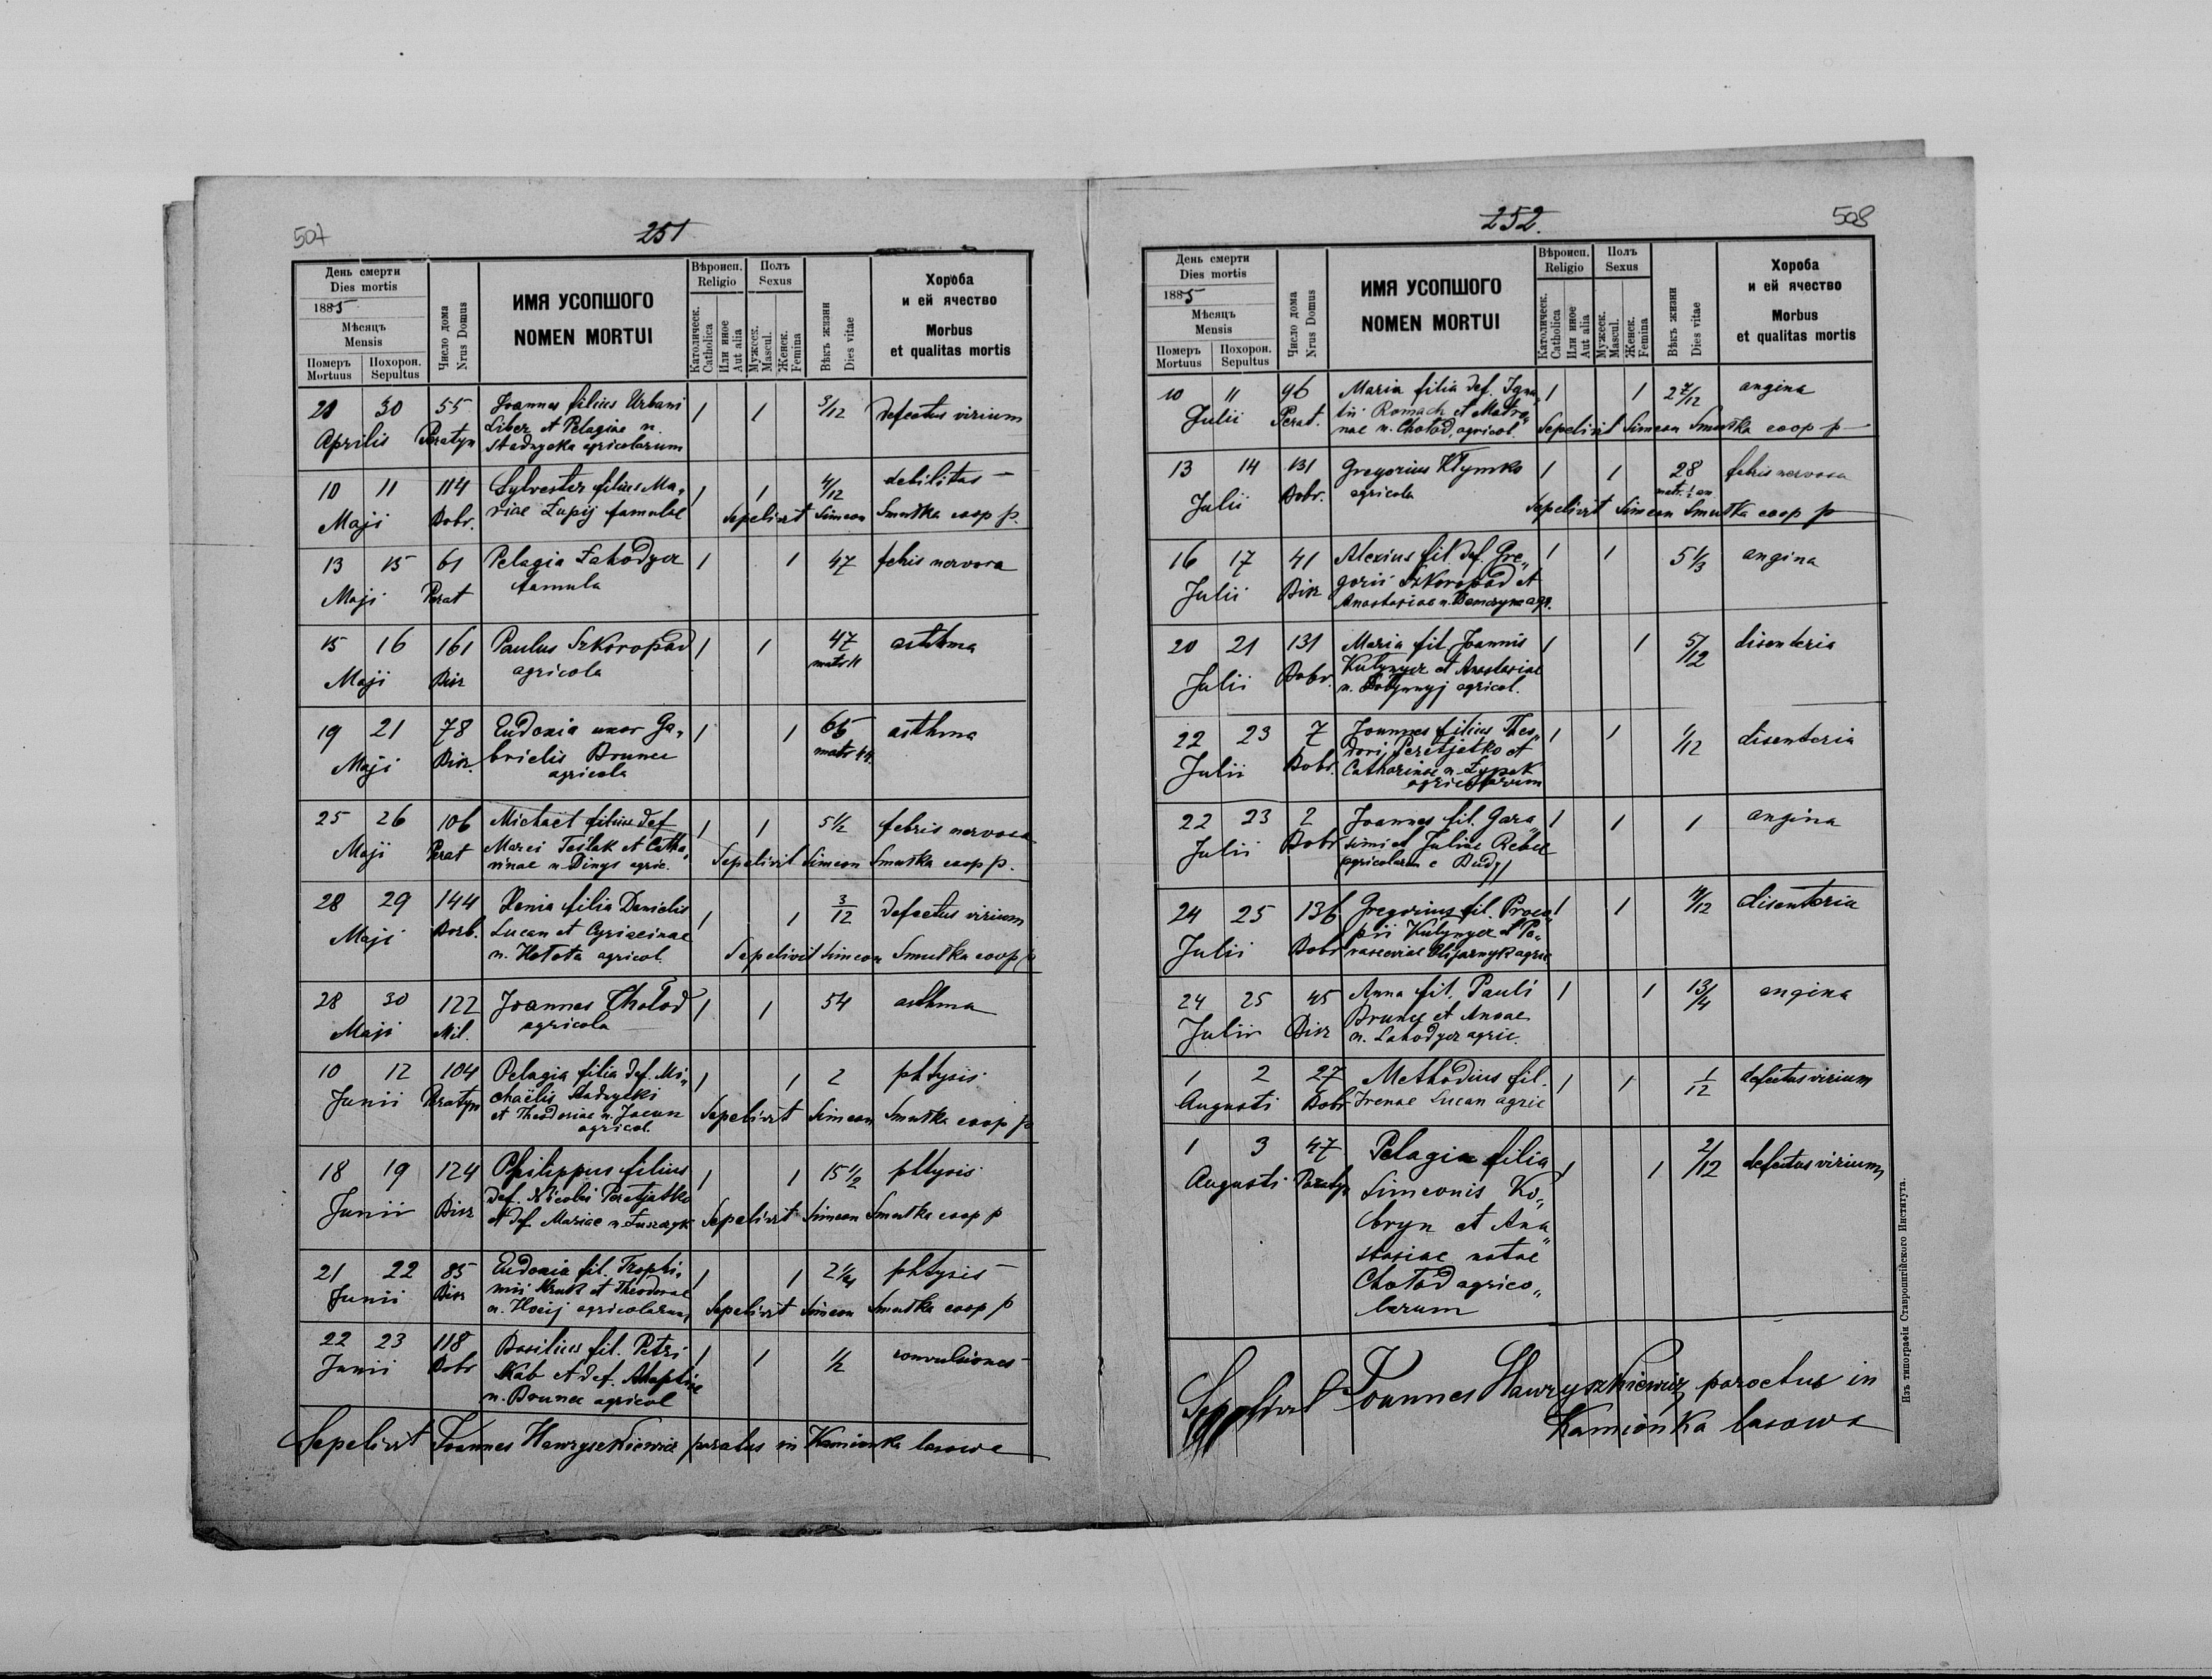 507
251
День смерти
Dies mortis
1885
Мѣсяцъ
Mensis
Померъ
Mortuus
Похорон.
Sepultus
Число дома
Nrus Domus
ИМЯ УСОПШОГО
NOMEN MORTUI
Вѣроисп.
Religio
Католическ.
Catholica
Или иное
Aut alia
Полъ
Sexus
Мужеск.
Mascul.
Женск.
Femina
Вѣкъ жизни
Dies vitae
Хороба
и ей ячество
Morbus
et qualitas mortis
28 30 55 Joannes filius Urbani 1 1 3/12 defectus virium
Aprilis Peratyn Liber et Pelagiae n.
Stadnycka agricolarum
10 11 114 Sylvester filius Ma„ 1 1 4/12 debilitas
Maji Bobr. riae Łupij famulae Sepelivit Simeon Smutka coop p.
13 15 61 Pelagia Łahodycz 1 1 47 febris nervosa
Maji Perat famula
15 16 161 Paulus Szkoropad 1 1 47 asthma
Maji Bisz agricola
19 21 78 Eudoxia uxor Ga„ 1 1 65 asthma
Maji Bisz. brielis Brunec
agricola
25 26 106 Michaël filius def 1 1 5½ febris nervosa
Maji Perat Marci Teślak et Catha„
rinae n. Dinys agric. Sepelivit Simeon Smutka coop p.
28 29 144 Xenia filia Danielis 1 1 3/12 defectus virium
Maji Borb. Lucan et
n. Hołota agricol. Sepelivit Simeon Smutka coop p
28 30 122 Joannes Chołod 1 1 54 asthma
Maji Mil. agricola
10 12 104 Pelagia filia def. Mi„ 1 1 2 phtysis
Junii Peratyn chaëlis Stadnycki
et Theodosiae n. Jacun
agricol. Sepelivit Simeon Smutka coop p
18 19 124 Philippus filius 1 1 15½ phtysis
Junii Bisz def. Nicolai Peretjatko
et def. Mariae n. Łuszczyk Sepelivit Simeon Smutka coop p
21 22 85 Eudoxia fil. Trophi„ 1 1 2¼ phtysis
Junii Bisz mii Kruk et Theodorae
n. Hocij agricolarum Sepelivit Simeon Smutka coop p
22 23 118 Basilius fil. Petri 1 1 ½ convulsiones
Junii Bobr Kab et def.
n. Brunec agricol
Sepelivit Joannes Hawryszkiewicz in Kamionka lasowa
252.
508
День смерти
Dies mortis
1885
Мѣсяцъ
Mensis
Померъ
Mortuus
Похорон.
Sepultus
Число дома
Nrus Domus
ИМЯ УСОПШОГО
NOMEN MORTUI
Вѣроисп.
Religio
Католическ.
Catholica
Или иное
Aut alia
Полъ
Sexus
Мужеск.
Mascul.
Женск.
Femina
Вѣкъ жизни
Dies vitae
Хороба
и ей ячество
Morbus
et qualitas mortis
10 11 96 Maria filia def. Igna„ 1 1 2 7/12 angina
Julii Perat. tii Romach et Matro„
nae n. Chołod, agricol. Sepelivit Simeon Smutka coop p
13 14 131 Gregorius Kłymko 1 1 28 febris nervosa
Julii Bobr. agricola
Sepelivit Simeon Smutka coop p
16 17 41 Alexius fil. def. Gre„ 1 1 5⅓ angina
Julii Bisz gorii Szkoropad et
Anastasiae n. agr.
20 21 131 Maria fil Joannis 1 1 5/12 disenteria
Julii Bobr. Kułynycz et Anastasiae
n. agricol.
22 23 7 Joannes filius Theo„ 1 1 1/12 disenteria
Julii Bobr. dori Peretjatko et
Catharinae n. Łypak
agricolarum
22 23 2 Joannes fil. Gara„ 1 1 1 angina
Julii Bobr simi et Juliae Rebec
agricolarum e Budy
24 25 136 Gregorius fil. Proco„ 1 1 4/12 disenteria
Julii Bobr pii Kułynycz et Pa„
rasceviae agric
24 25 45 Anna fil. Pauli 1 1 13/4 angina
Julii Bisz Brunec et Annae
n. Łahodycz agric.
1 2 27 Methodius fil. 1 1 1/12 defectus virium
Augusti Bobr Irenae Lucan agric
1 3 47 Pelagia filia 1 1 2/12 defectus virium
Augusti Peratyn Simeonis Ko„
bryn et Ana„
stasiae natae
Chołod agrico„
larum
Sepelivit Joannes Hawryszkiewicz parochus in
Kamionka lasowa
Изъ типографіи Ставропигійского Института.